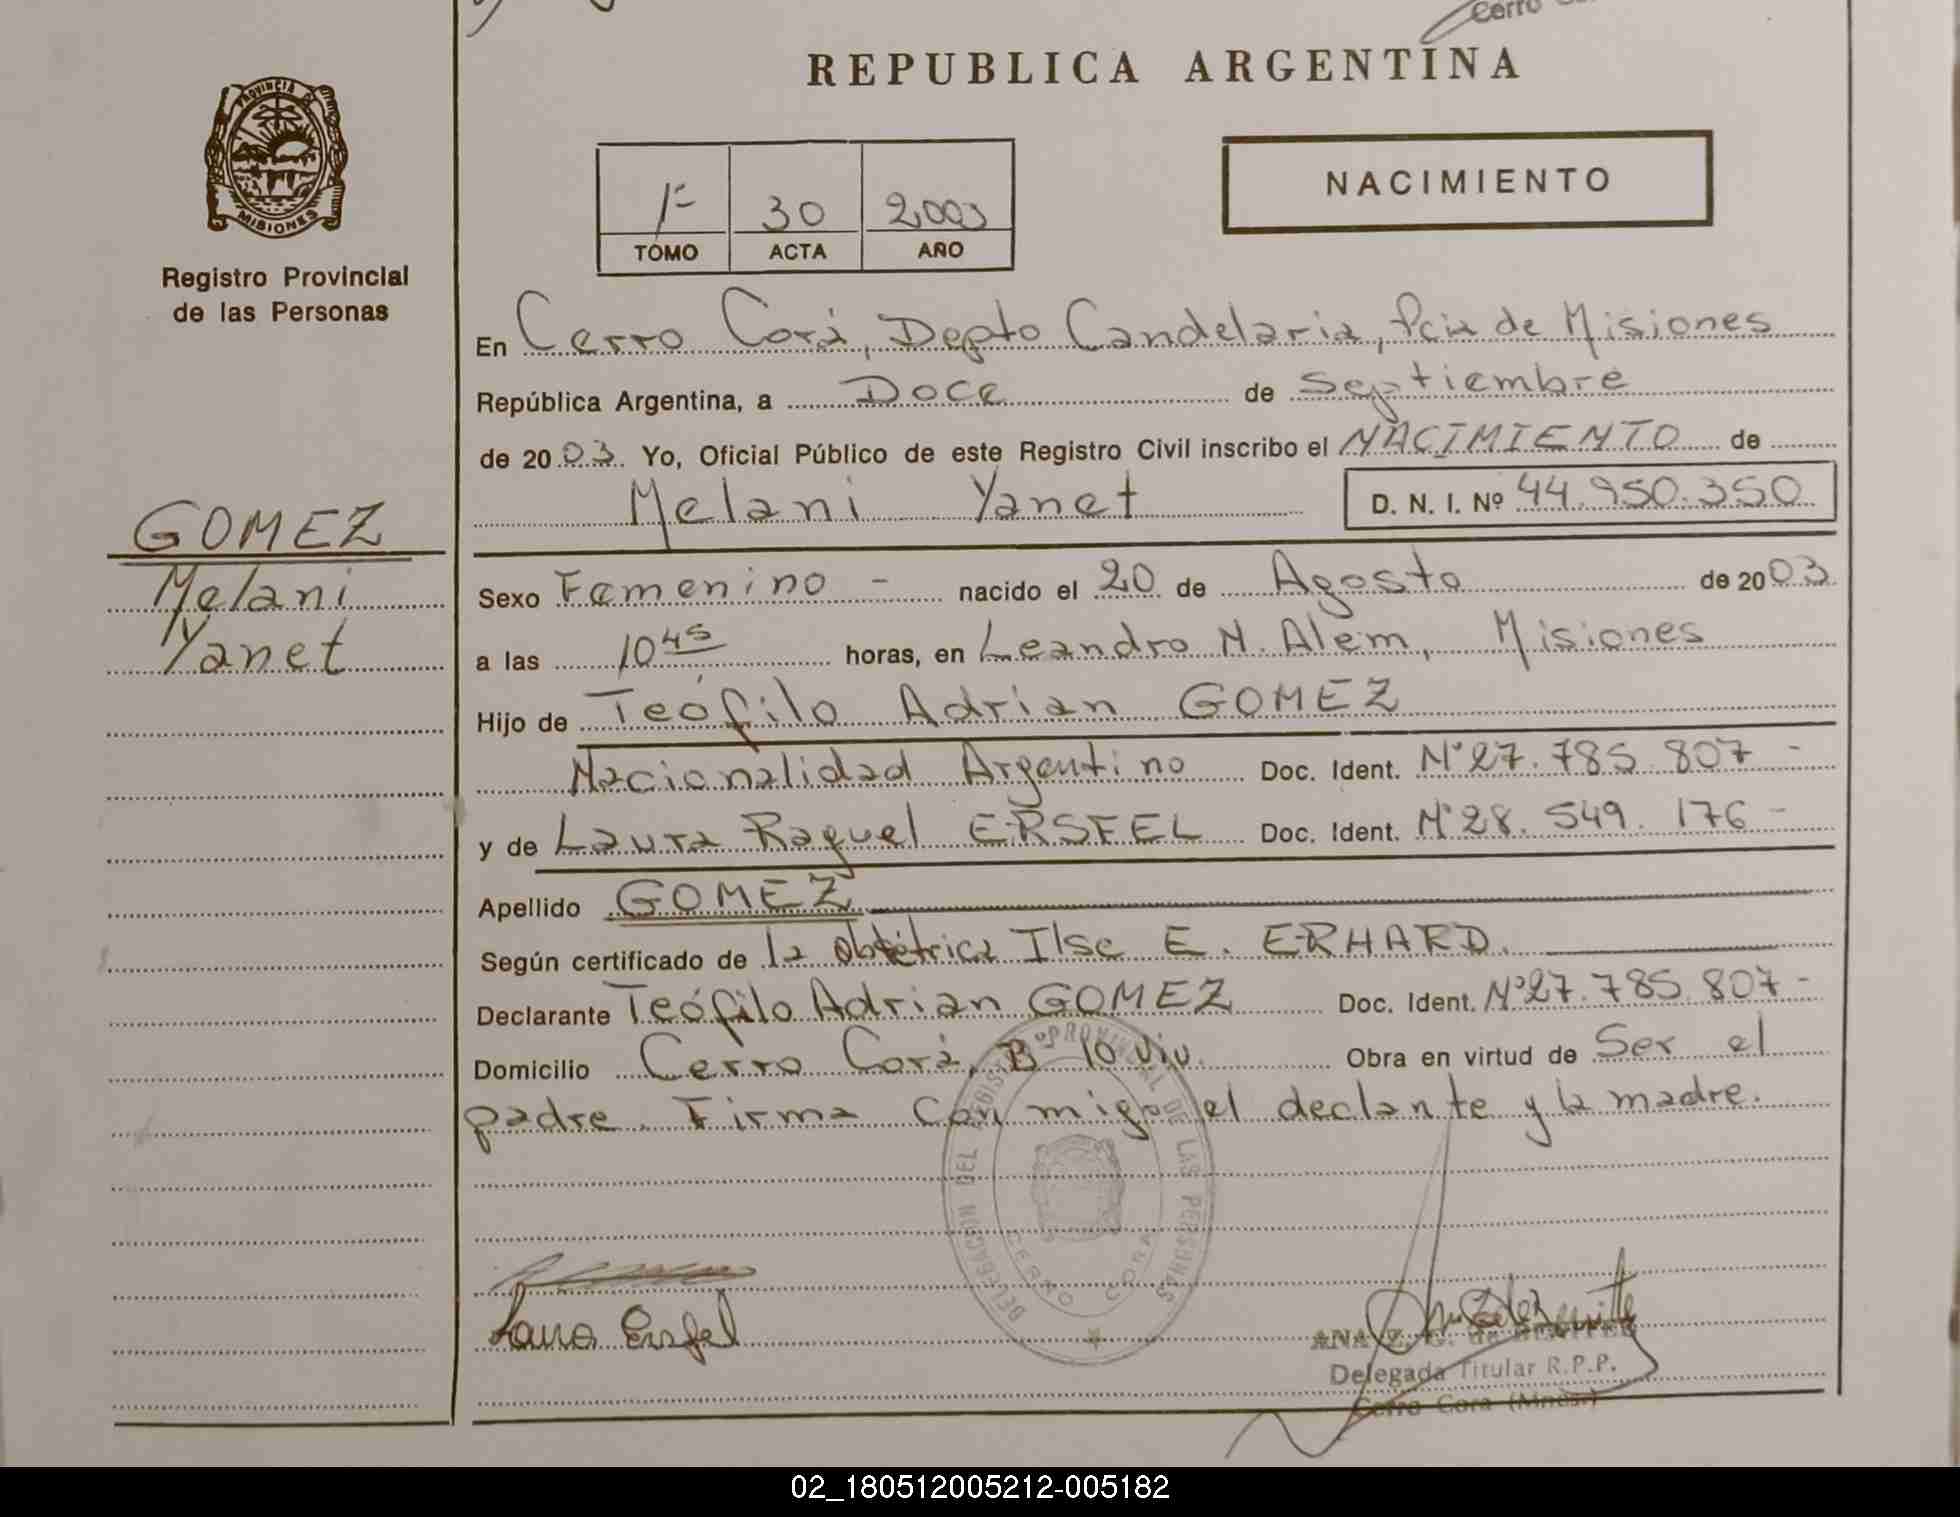 Cerro
REPUBLICA ARGENTINA
PROVINCIA DE
MISIONES
Registro Provincial
de las Personas
1º 30 2003
TOMO ACTA AÑO
NACIMIENTO
En Cerro Corá, Depto Candelaria, Pcia de Misiones
República Argentina, a Doce de Septiembre
de 2003 Yo, Oficial Público de este Registro Civil inscribo el NACIMIENTO de
Melani Yanet D. N. I. Nº 44.950.350
GOMEZ
Melani
Yanet
Sexo Femenino - nacido el 20 de Agosto de 2003
a las 10 45 horas, en Leandro N. Alem, Misiones
Hijo de Teófilo Adrian GOMEZ
Nacionalidad Argentino Doc. Ident. Nº 27.785.807 -
y de Laura Raquel ERSFEL Doc. Ident. Nº 28.549.176 -
Apellido GOMEZ
Según certificado de la obtétrica Ilse E. ERHARD.
Declarante Teófilo Adrian GOMEZ Doc. Ident. Nº 27.785.807 -
Domicilio Cerro Corá, Bº 10 Viv. Obra en virtud de Ser el
padre. Firma con migo el declante y la madre.
DELEGACION DEL REGISTRO PROVINCIAL DE LAS PERSONAS
CERRO CORA
Laura Ersfel
ANA Z. de
Delegada Titular R.P.P.
Cerro Cora (Mnes.)
02_180512005212-005182